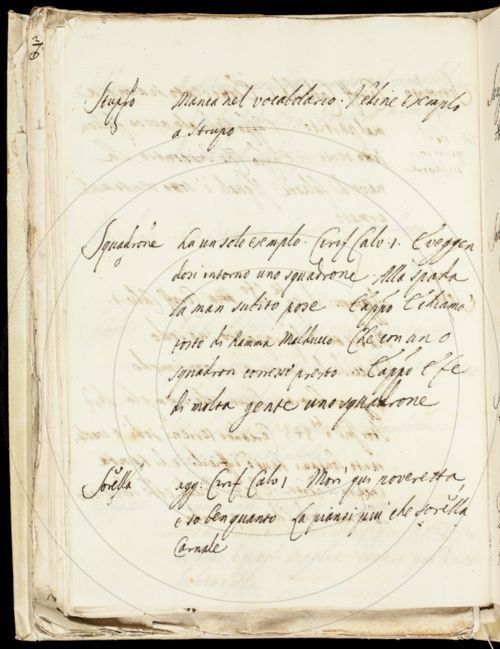 Stuppo Manca nel vocabolario. Vedine esempio
a Strupo
Squadrone ha un solo esempio. Cirif. Calv. 1. E veggen
dosi intorno uno squadrone. Alla spada
la man subito pose E appo E chiamò
tosto di Ramma Malducco Che con uno
squadron corresse presto E appo E fe
di molta gente uno squadrone
Sorella agg. Cirif. Calv. 1 Morì qui poveretta,
e so ben quanto La piansi più che sorella
Carnale